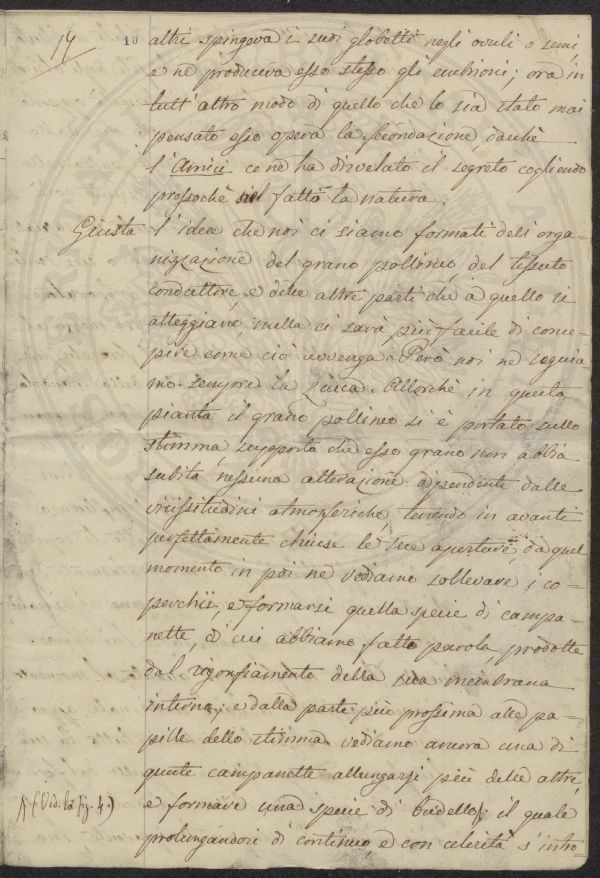 14
10
altri spingeva i suoi globetti negli ovuli o semi,
e ne produceva esso stesso gli embrioni; ora in
tutt'altro modo di quello che lo sia stato mai
pensato esso opera la fecondazione dacchè
l'Amici ce ne ha disvelato il segreto cogliendo
pressochè sul fatto la natura.
Giusta l'idea che noi ci siamo formati dell'orga-
nizzazione del grano pollineo, del tessuto
conduttore, e delle altre parti che a quello si
atteggiano, nulla ci sarà più facile di conce-
pire come ciò avvenga. Però noi ne seguia-
mo sempre la zucca. Allorchè in questa
pianta il grano pollineo si è portato sullo
stimma, supposto che esso grano non abbia
subita nessuna alterazione dipendente dalle
vicissitudini atmosferiche, tenendo in avanti
perfettamente chiuse le sue aperture, da quel
momento in poi ne vediamo sollevare i co-
perchii, e formarsi quella specie di campa-
nette, di cui abbiamo fatto parola, prodotte
dal rigonfiamento della sua membrana
interna; e dalla parte più prossima alle pa-
pille dello stimma vediamo ancora una di
queste campanette allungarsi più delle altre,
(Ved. la fig. 4.) e formare una specie di budello; il quale
prolungandosi di continuo e con celerità s'intro